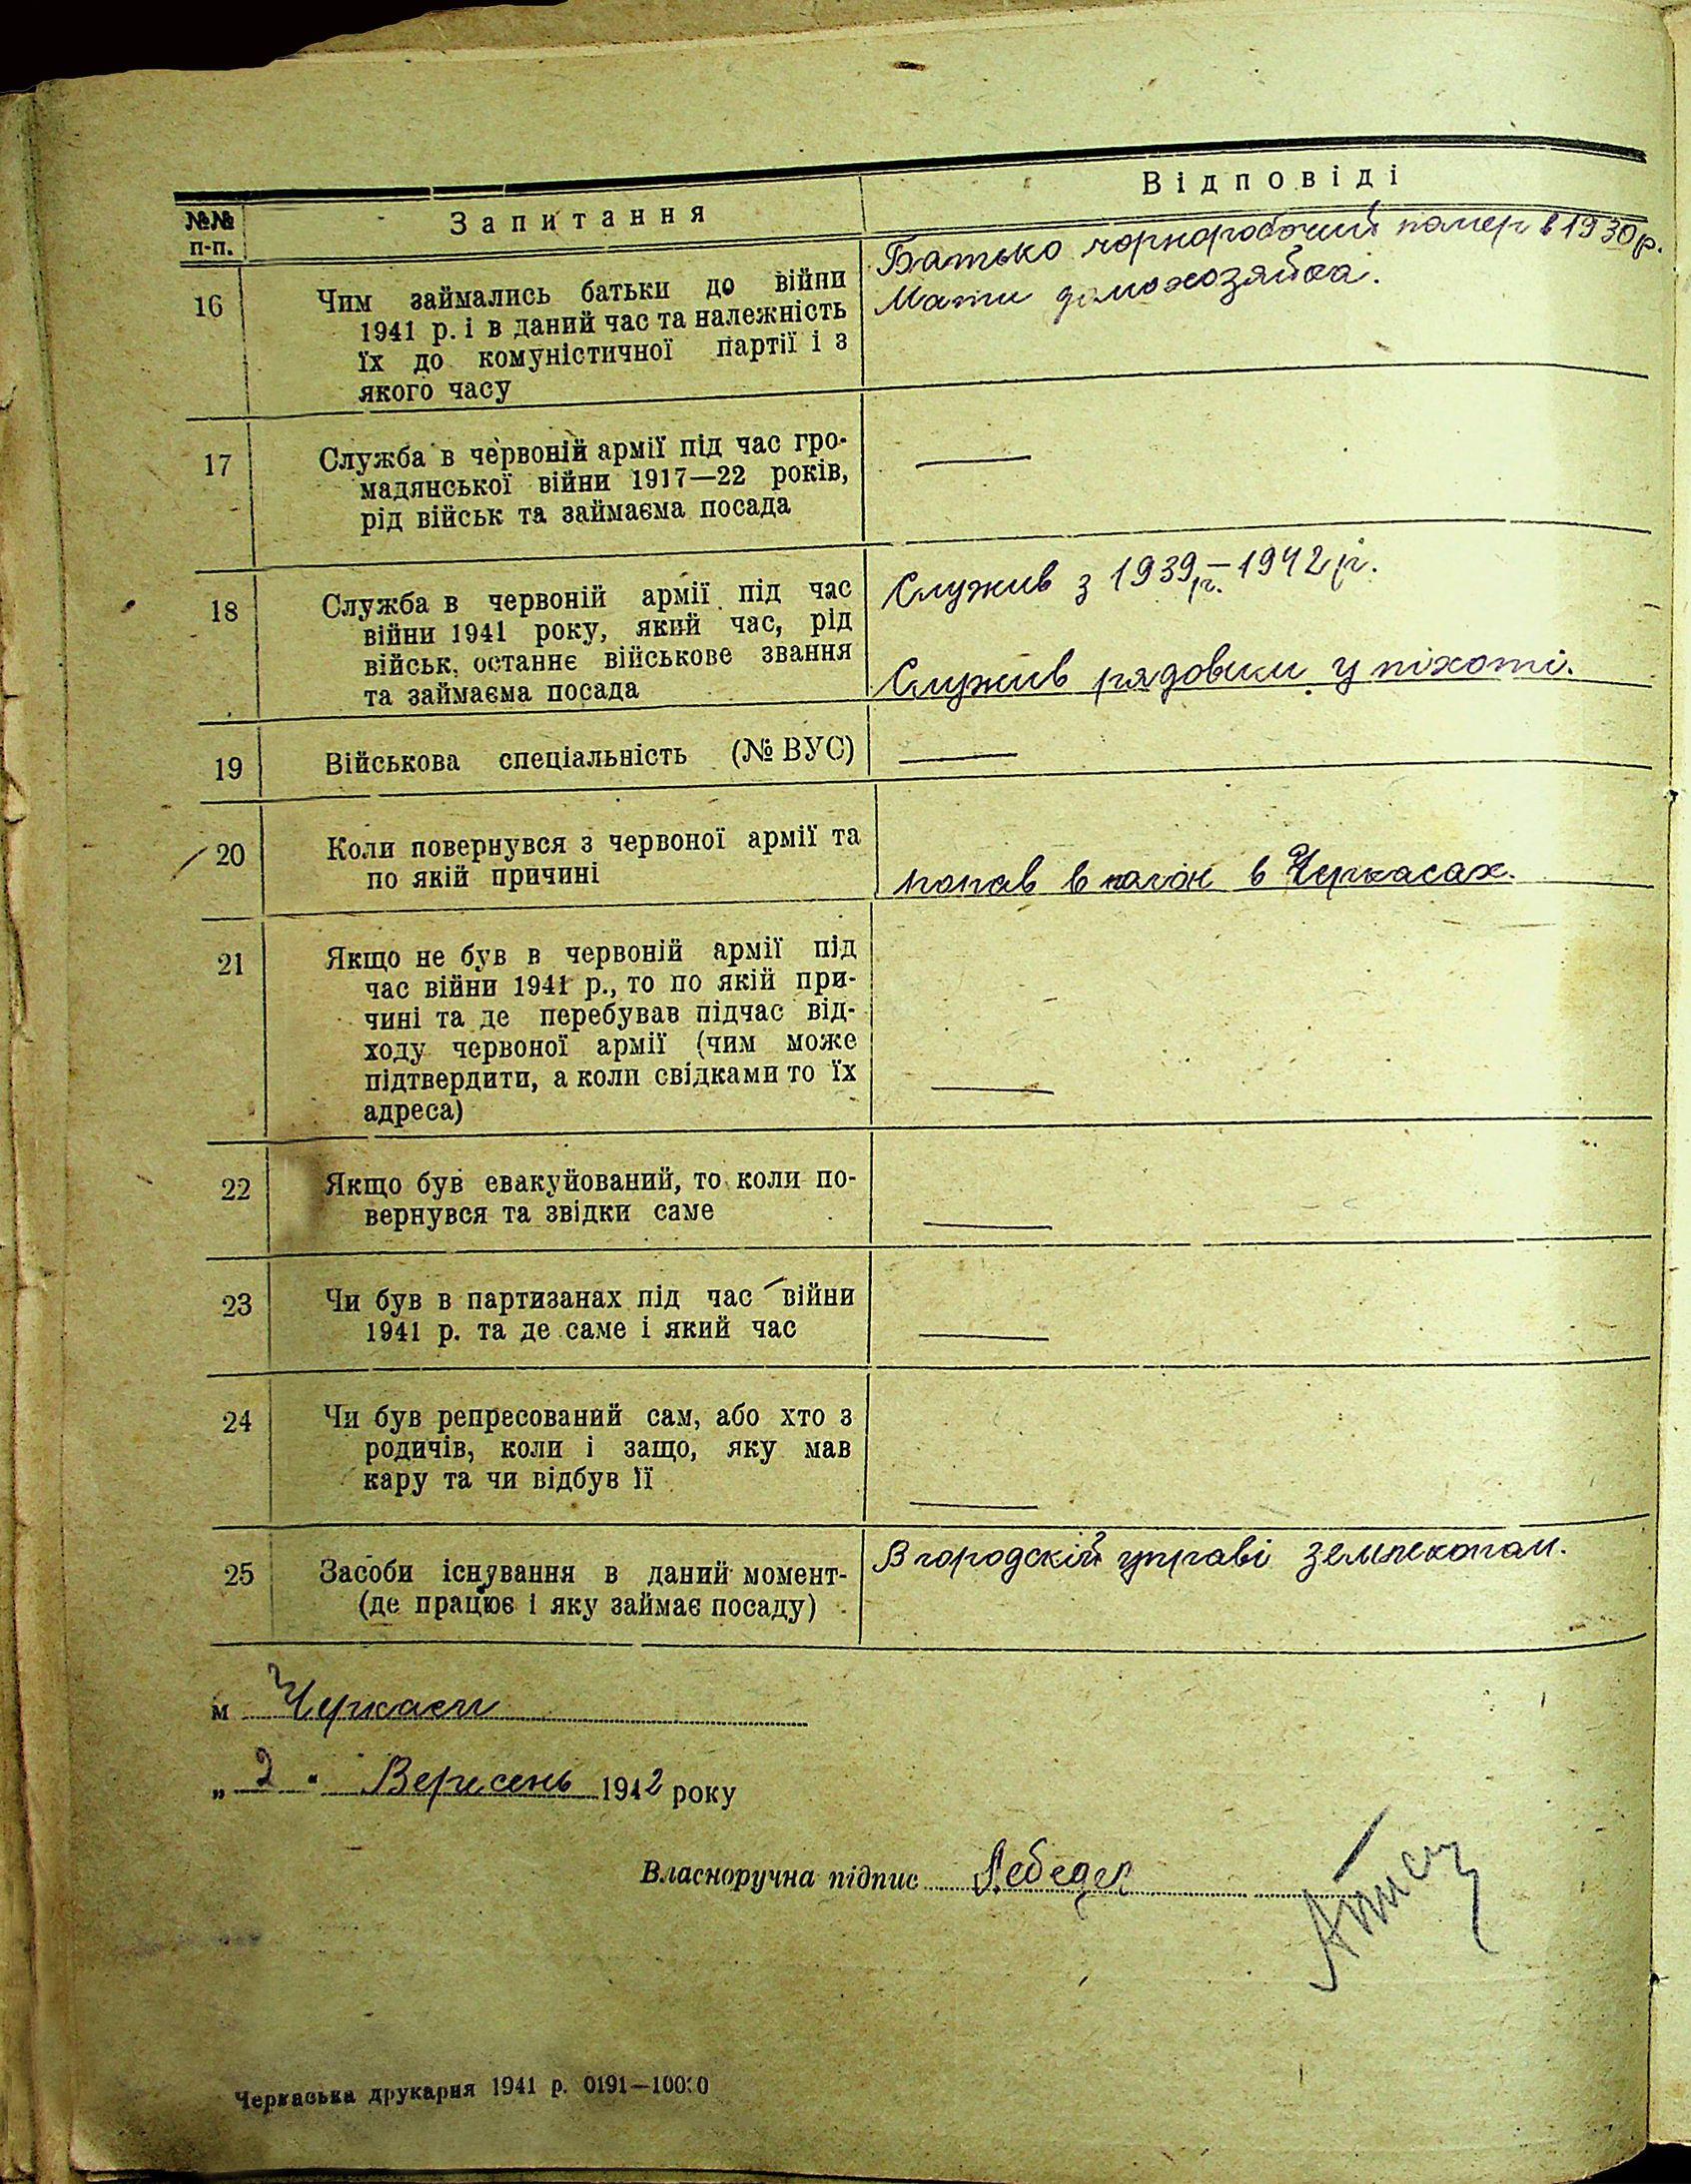 №№
п-п.
Запитання
Відповіді
16
Чим займались батьки до війни
1941 р. і в даний час та належність
їх до комуністичної партії і з
якого часу
Батько чорноробочий помер в 1930 р.
Мати домохозяйка.
17
Служба в червоній армії під час гро-
мадянської війни 1917—22 років,
рід військ та займаєма посада
—
18
Служба в червоній армії під час
війни 1941 року, який час, рід
військ, останнє військове звання
та займаєма посада
Служив з 1939 р. – 1942 р.
Служив рядовим у піхоті.
19
Військова спеціальність (№ ВУС)
—
20
Коли повернувся з червоної армії та
по якій причині
попав в полон в Черкасах.
21
Якщо не був в червоній армії під
час війни 1941 р., то по якій при-
чині та де перебував підчас від-
ходу червоної армії (чим може
підтвердити, а коли свідками то їх
адреса)
—
22
Якщо був евакуйований, то коли по-
вернувся та звідки саме
—
23
Чи був в партизанах під час війни
1941 р. та де саме і який час
—
24
Чи був репресований сам, або хто з
родичів, коли і защо, яку мав
кару та чи відбув її
—
25
Засоби існування в даний момент-
(де працює і яку займає посаду)
В городскій управі землекопом.
м Черкаси
„ 2 " Вересень 1942 року
Власноручна підпис Лебедев
Черкаська друкарня 1941 р. 0191—10000